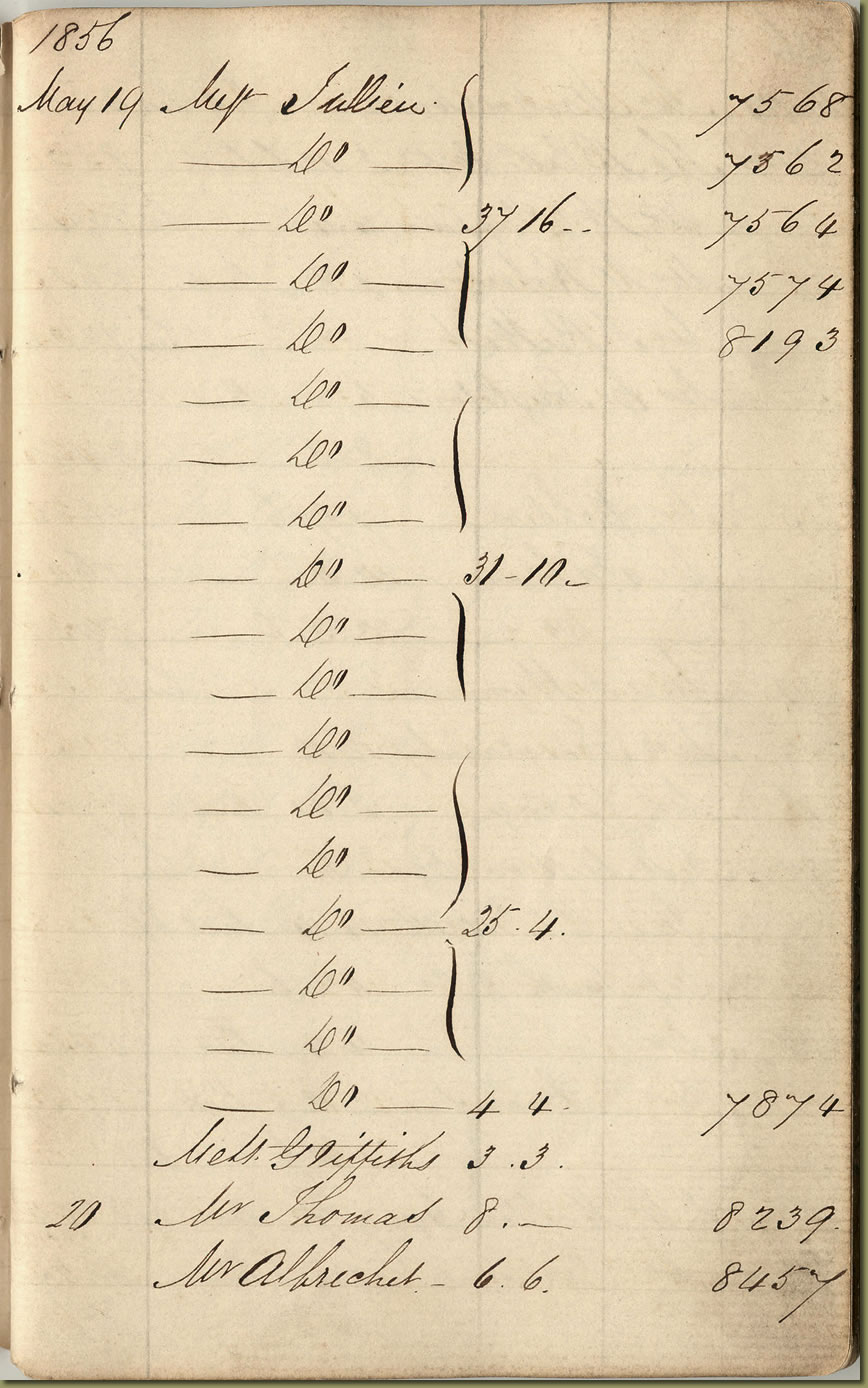 1856
May 19 Mess Jullien. 7568
Do 7562
Do 37 16 - - 7564
Do 7574
Do 8193
Do
Do
Do
Do 31 - 10 -
Do
Do
Do
Do
Do
Do 25 . 4 .
Do
Do
Do 4 4 - 7874
Griffiths 3 . 3 .
20 Mr Thomas 8 . — 8239.
Mr Albrecht - 6 . 6 . 8457